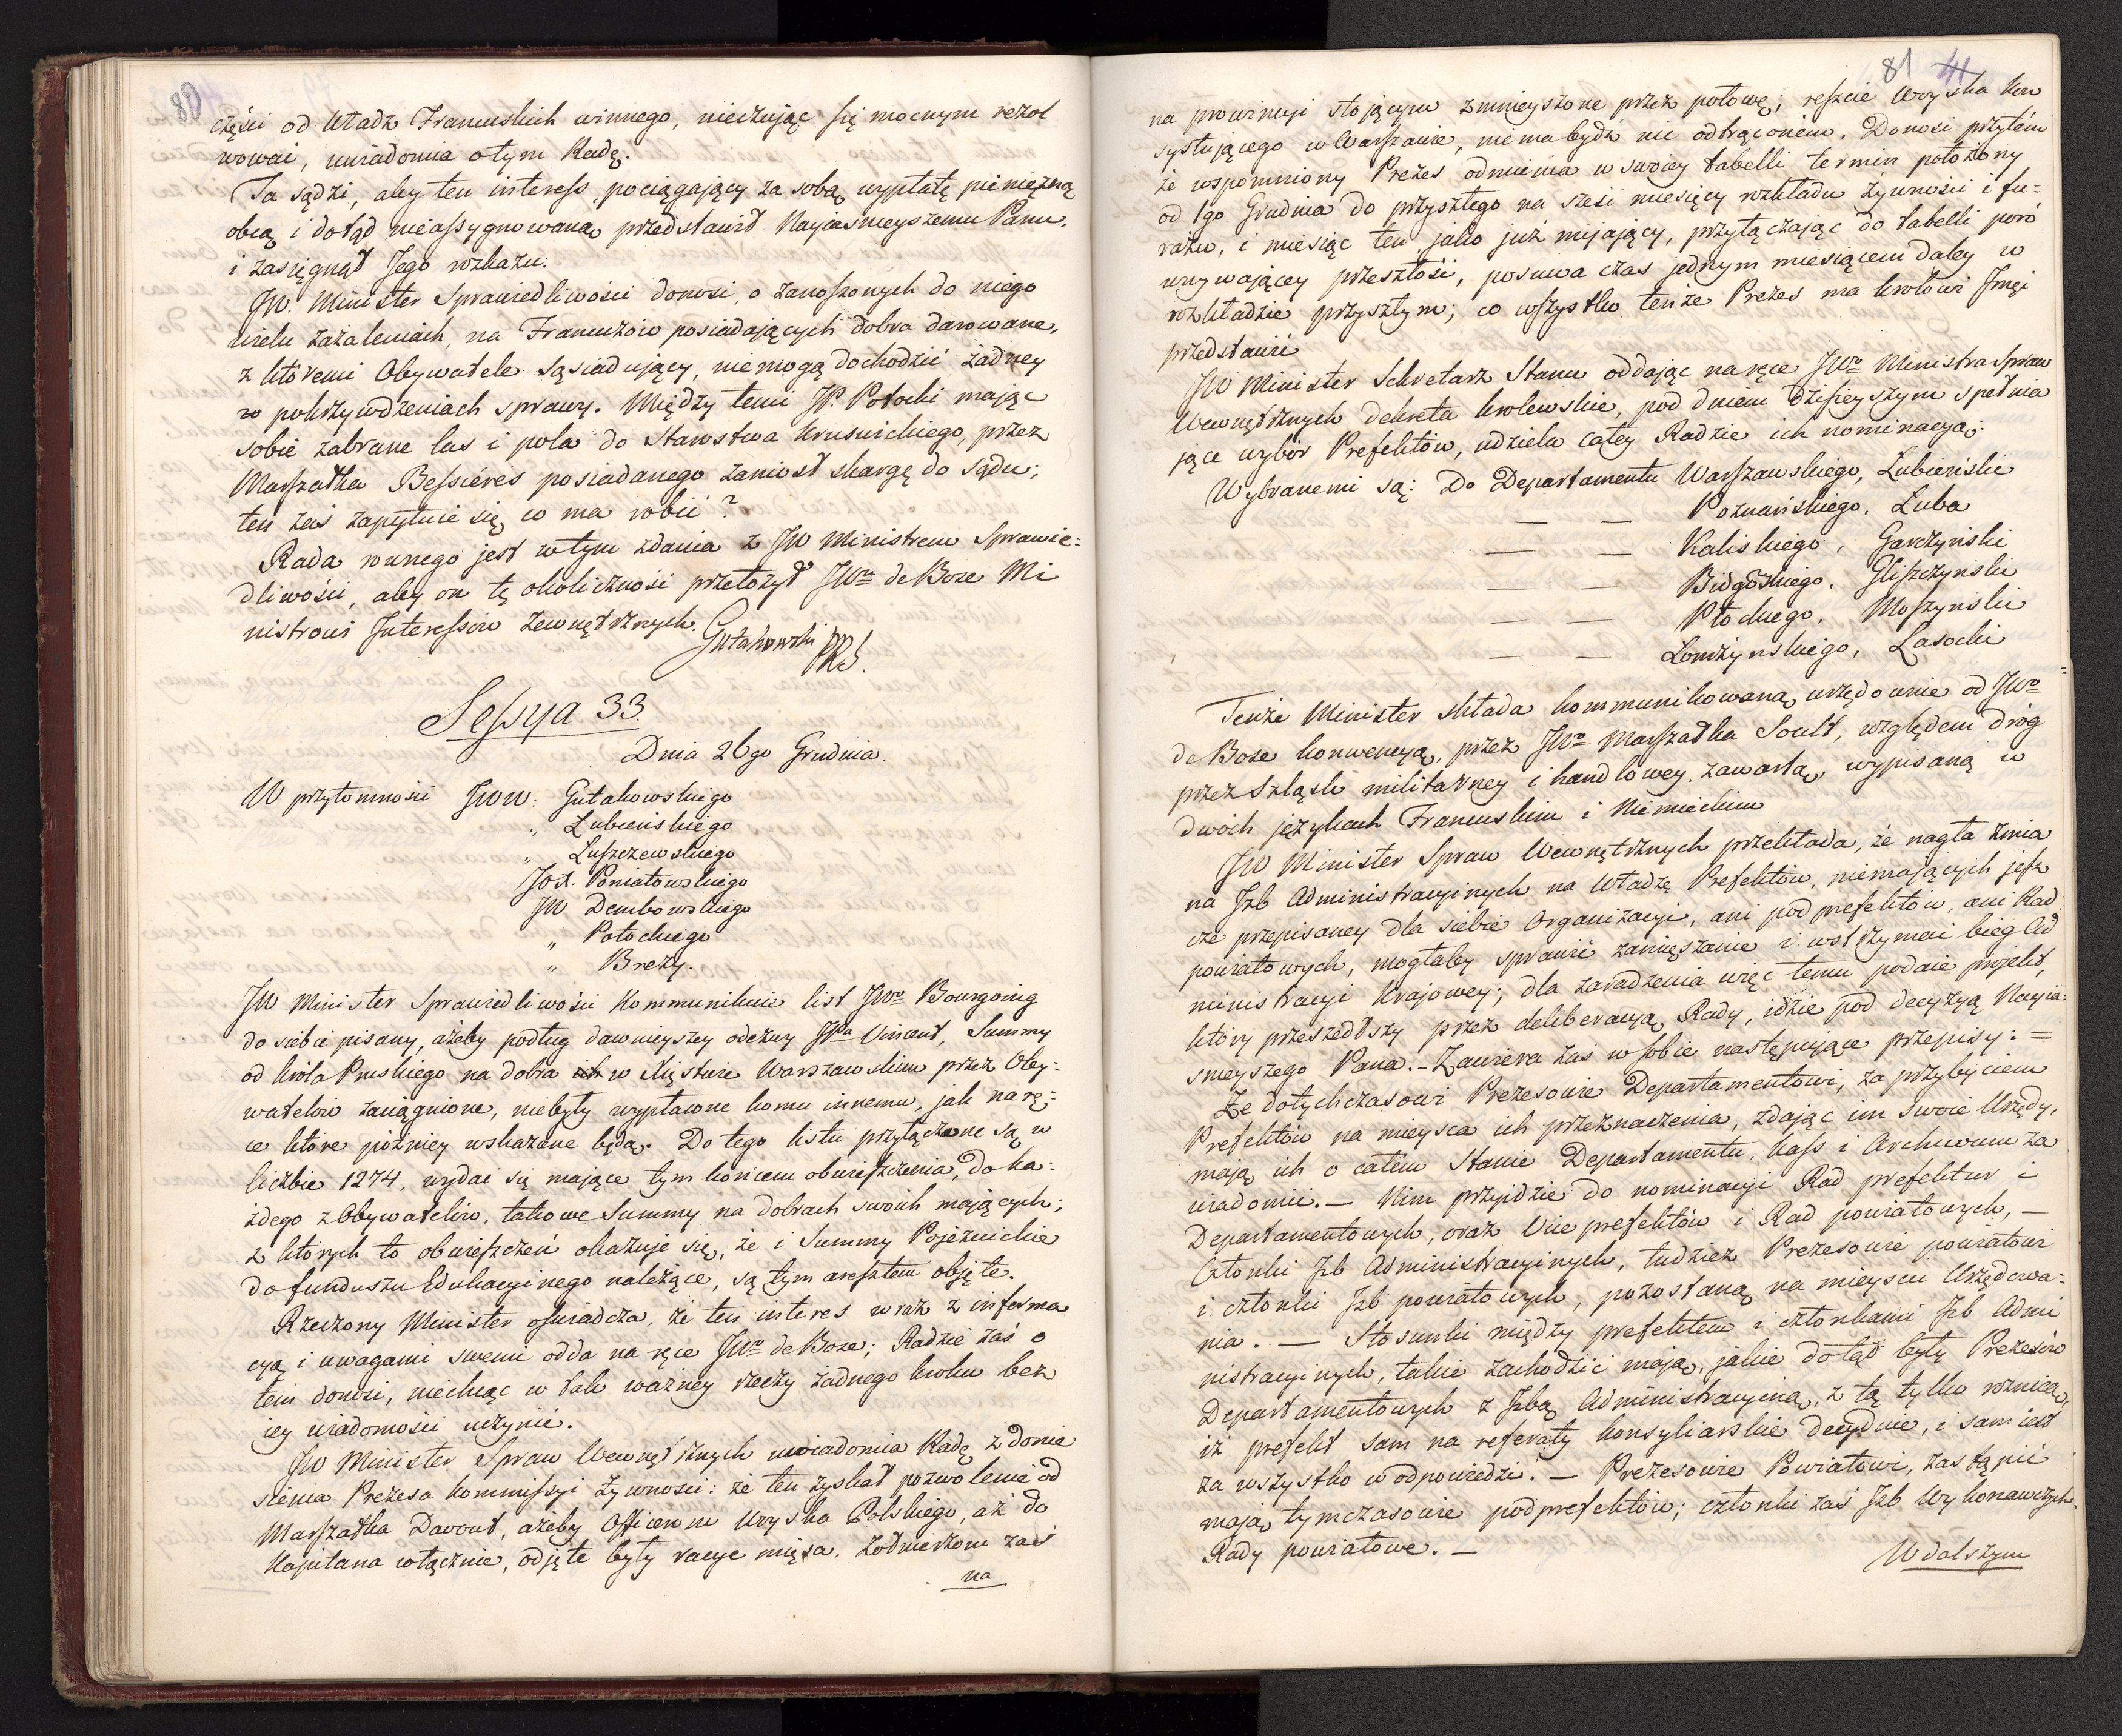 80
części od Władz Francuskich winnego, nieczując się mocnym rezol
wować, uwiadomia o tym Radę.
Ta sądzi, aby ten interess, pociągający za sobą wypłatę pieniężną
obcą i dotąd nieassygnowaną przedstawił Nayjasnieyszemu Panu,
i zasięgnął Jego rozkazu.
JW. Minister Sprawiedliwości donosi, o zanoszonych do niego
wielu zażaleniach, na Francuzów posiadających dobra darowane,
z któremi Obywatele sąsiadujący, niemogą dochodzić żadney
w pokrzywdzeniach sprawy. Między temi JP. Potocki mając
sobie zabrane las i pola do Starostwa Kruswickiego, przez
Marszałka Bessiéres posiadanego zaniosł skargę do sądu;
ten zaś zapytuie się co ma robić?
Rada rownego jest wtym zdania z JW Ministrem Sprawie=
dliwości, aby on tę okoliczność przełożył JWu de Boze Mi
nistrowi Interessow Zewnętrznych.
Gutakowski PRS.
Sessya 33.
Dnia 26go Grudnia.
W przytomności JWW: Gutakowskiego
„ Lubieńskiego
„ Łuszczewskiego
JOX. Poniatowskiego
JW Dembowskiego
„ Potockiego
„ Brezy.
JW Minister Sprawiedliwości Kommunikuie list JWo Bourgoing
do siebie pisany, ażeby podług dawnieyszey odezwy JPa Vincent, Summy
od Króla Pruskiego na dobra w Xięstwie Warszawskim przez Oby=
watelow zaciągnione, niebyły wypłacone komu innemu, jak na rę=
ce które pózniey wskazane będą. Do tego listu przyłączone są w
liczbie 1274, wydać się mające tym końcem obwieszczenia, do ka=
żdego z Obywatelów, takowe Summy na dobrach swoich mających;
z których to obwieszczeń okazuje się, że i Summy Pojezuickie
do funduszu Edukacyinego należące, są tym aresztem objęte.
Rzeczony Minister oświadcza, że ten interes wraz z informa
cyą i uwagami swemi odda na ręce JWo de Boze; Radzie zaś o
tem donosi, niechcąc w tak ważney rzeczy żadnego kroku bez
iey wiadomości uczynić.
JW Minister Spraw Wewnętrznych uwiadomia Radę z donie
sienia Prezesa Kommissyi Żywności: że ten zyskał pozwolenie od
Marszałka Davout, ażeby Officerom Woyska Polskiego, aż do
Kapitana włącznie, odjęte były racye mięsa, Żołnierzom zaś
na
81 41
na prowincyi stojącym zmnieyszone przez połowę; reszcie Woyska kon
systującego w Warszawie, niema bydz nic odtrąconém. Donosi przytém
że wspomniony Prezes odmienia w swoiey tabelli termin położony
od 1go Grudnia do przyszłego na sześć miesięcy rozkładu żywności i fu=
rażu, i miesiąc ten jako już mijający, przyłączając do tabelli poró
wnywającey przeszłość, posuwa czas jednym miesiącem daley w
rozkładzie przyszłym; co wszystko tenże Prezes ma Krolowi Jmci
przedstawić
JW Minister Sekretarz Stanu oddając na ręce JWo Ministra Spraw
Wewnętrznych dekreta krolewskie, pod dniem dzisieyszym spełnia
jące wybór Prefektow, udziela całey Radzie ich nominacyą:
Wybranemi są: Do Departamentu Warszawskiego, Łubieński
— — Poznańskiego. Łuba
— — Kaliskiego, Garczyński
— — Bidgoskiego. Gliszczynski
— — Płockiego, Moszynski
— — Łomżynskiego, Lasocki
Tenże Minister składa kommunikowaną urzędownie od JWo
de Boze konwencyą, przez JWo Marszałka Soult, względem dróg
przez Szląsk militarney i handlowey zawartą, wypisaną w
dwóch językach Francuskim i Niemieckim
JW Minister Spraw Wewnętrznych przekłada, że nagła zmia
na Izb Administracyinych na Władzę Prefektów, niemających jesz
cze przepisaney dla siebie Organizacyi, ani podprefektów, ani Rad
powiatowych, mogłaby sprawić zamięszanie i wstrzymać bieg Ad
ministracyi Krajowey; dla zaradzenia więc temu podaie projekt,
który przeszedłszy przez deliberacyą Rady, idzie pod decyzyą Nayia=
snieyszego Pana. – Zawiera zaś w sobie następujące przepisy: =
Że dotychczasowi Prezesowie Departamentowi, za przybyciem
Prefektów na mieysca ich przeznaczenia, zdając im swoie Urzędy,
mają ich o całém Stanie Departamentu, Kass i Archiwum za
wiadomić. — Nim przyidzie do nominacyi Rad prefektur i
Departamentowych, oraz Vice prefektów i Rad powiatowych, —
Członki Izb Administracyinych, tudzież Prezesowie powiatowi
i członki Izb powiatowych, pozostaną na mieyscu Urzędowa=
nia. — Stosunki między prefektem i członkami Izb Admi
nistracyinych, takie zachodzić mają, jakie dotąd były Prezesów
Departamentowych z Izbą Administracyiną, z tą tylko roznicą,
iż prefekt sam na referaty konsyliarskie decyduie, i sam iest
za wszystko w odpowiedzi. — Prezesowie Powiatowi, zastąpić
mają tymczasowie podprefektów; członki zaś Izb Wykonawczych,
Rady powiatowe. —
W dalszym